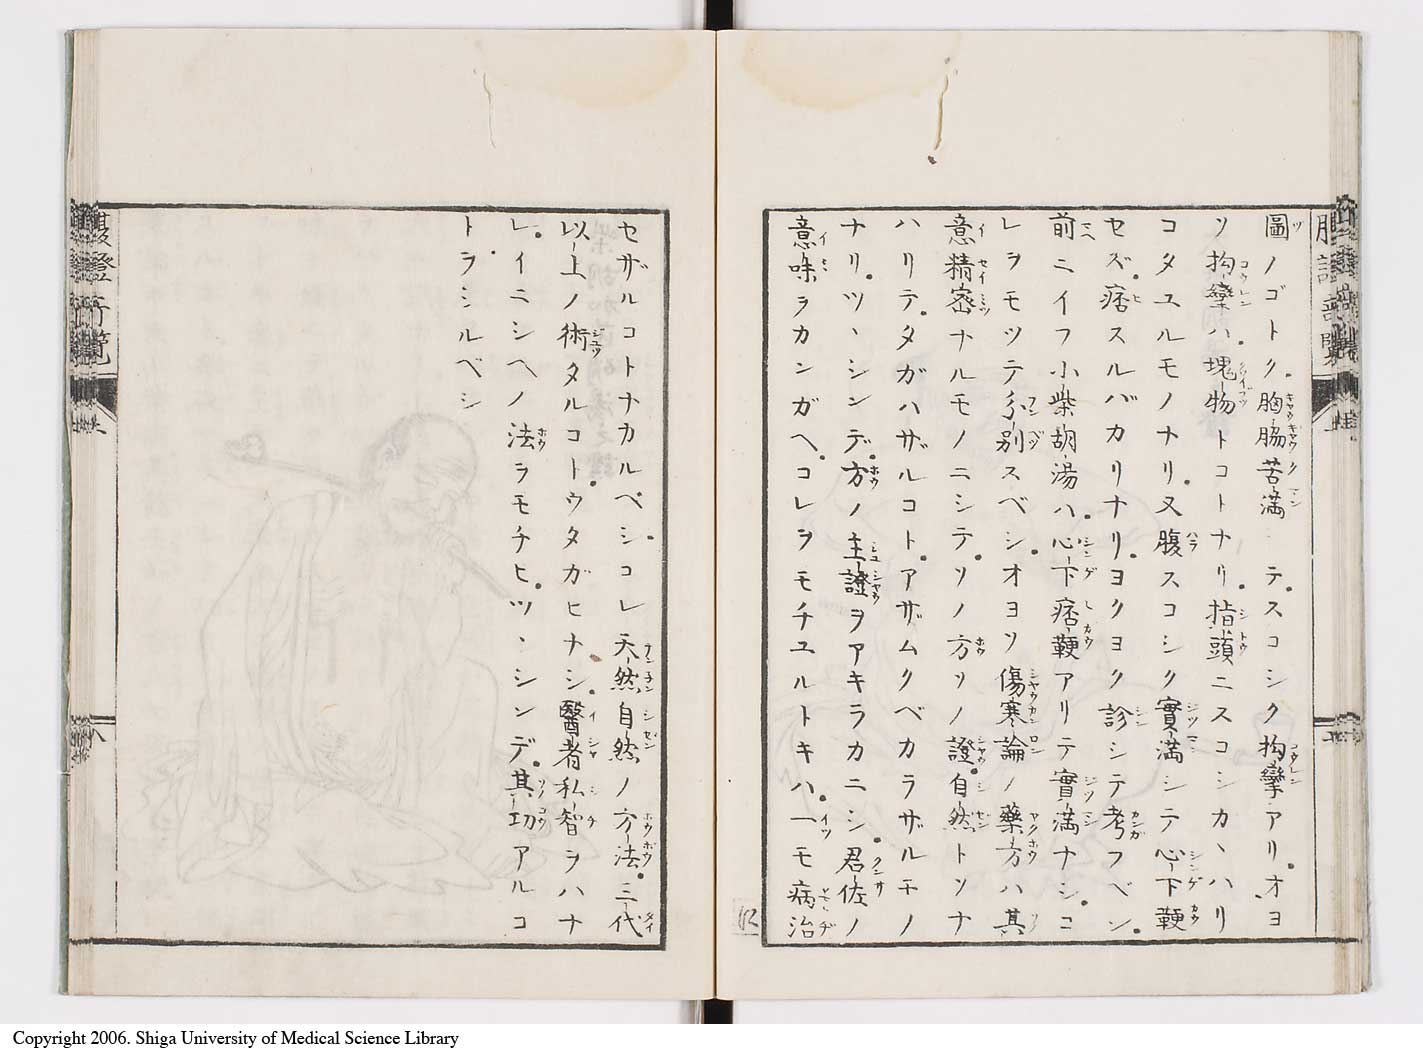 圖ノゴトク。胸脇苦滿 テスコシク拘攣アリ。オヨ
ソ拘攣ハ。塊物トコトナリ。指頭ニスコシカヽハリ
コタユルモノナリ。又腹スコシク實滿シテ心下鞕
セズ。痞スルバカリナリ。ヨクヨク診シテ考フベシ。
前ニイフ小柴胡湯ハ。心下痞鞕アリテ實滿ナシ。コ
レヲモツテ分別スベシ。オヨソ傷寒論ノ藥方ハ其
意精密ナルモノニシテ。ソノ方ソノ證。自然トソナ
ハリテ。タガハザルコト。アザムクベカラザルモノ
ナリ。ツヽシンデ。方ノ主證ヲアキラカニシ。君佐ノ
意味ヲカンガヘ。コレヲモチユルトキハ。一モ病治
セザルコトナカルベシ。コレ天然自然ノ方法。三代
以上ノ術タルコト。ウタガヒナシ。醫者私智ヲハナ
レ。イニシヘノ法ヲモチヒ。ツヽシンデ。其功アルコ
トヲシルベシ
Copyright 2006. Shiga University of Medical Science Library